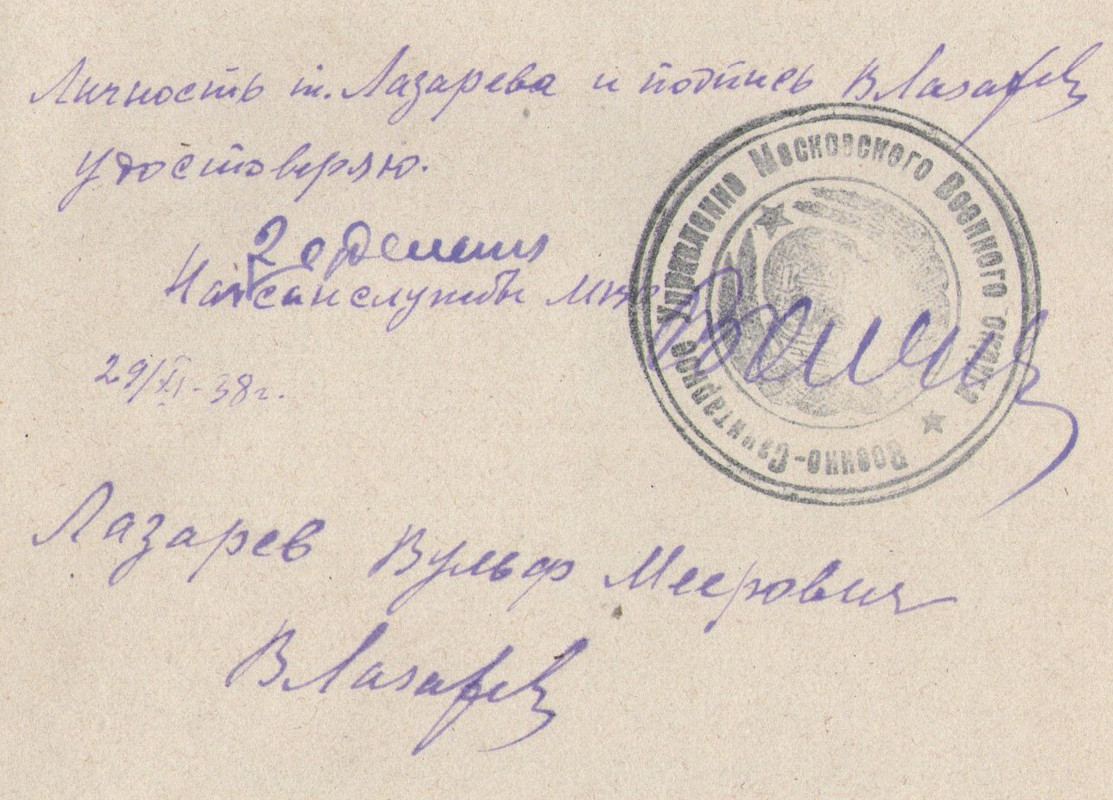 Личность т. Лазарева и подпись ВЛазарев
удостоверяю.
2 отделения
Нач санслужбы МВО
29/XI-38г.
Военно-Санитарное Управление Московского Военного округа
Лазарев Вульф Меерович
ВЛазарев